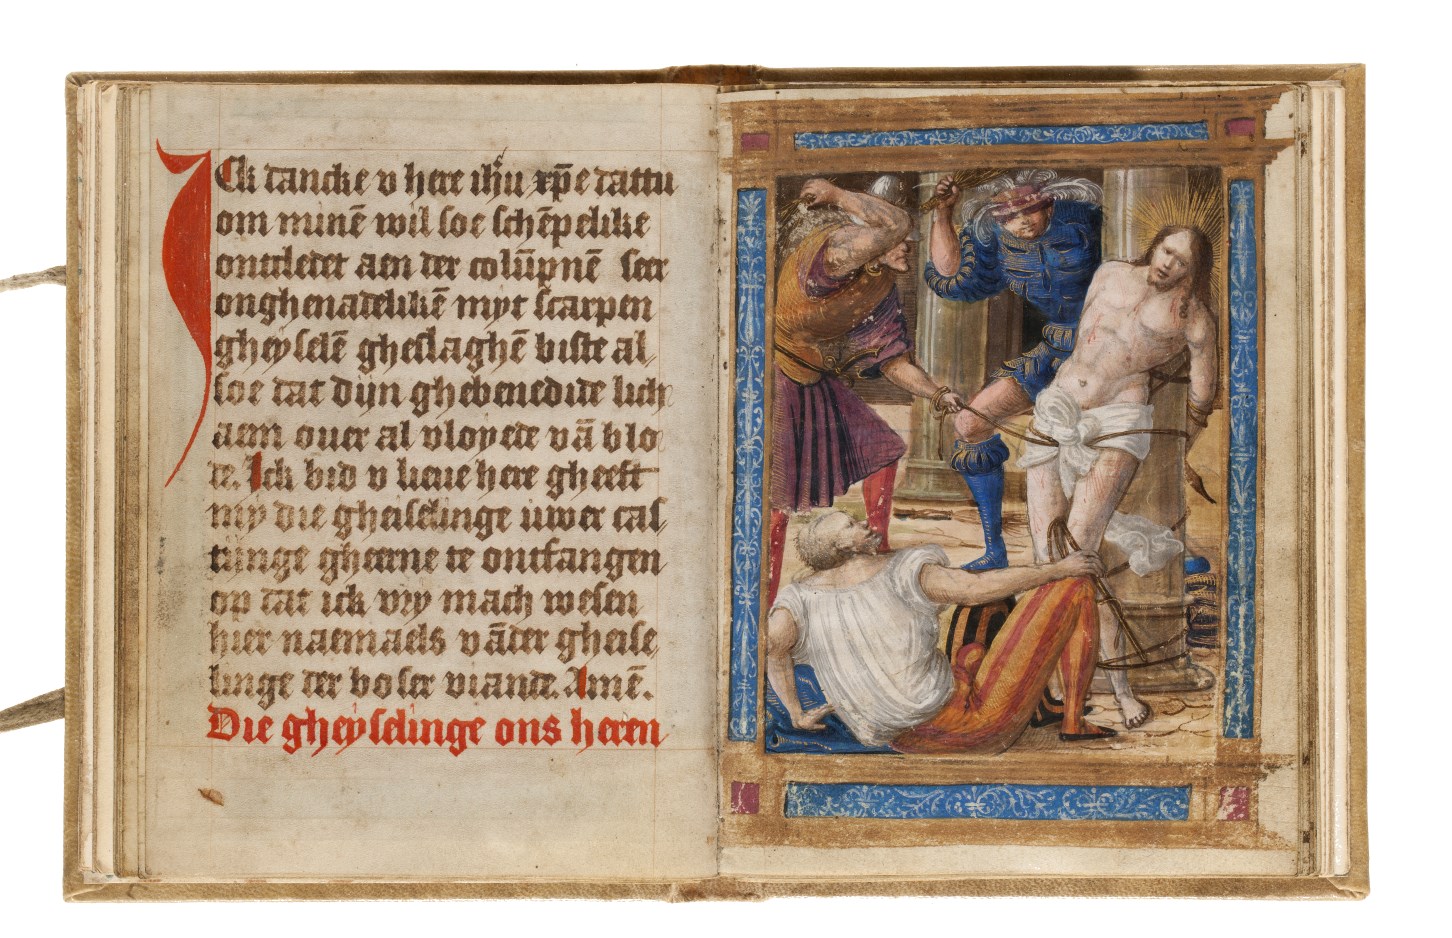 ICk dancke v here ihu xp̄e dattu
om minē wil soe schēpelike
ontcledet aen der colūpnē seer
onghenadelikē myt scarpen
gheyselē gheslaghē biste al
soe dat dijn ghebenedide lich
aem ouer al vloyede vā blo
de. Ick bid v lieue here gheeft
my die gheiselinge uwer cas
tijinge gheerne te ontfangen
op dat ick vry mach wesen
hier naemaels vāder gheise
linge der boser viande. Amē.
Die gheyselinge ons heren